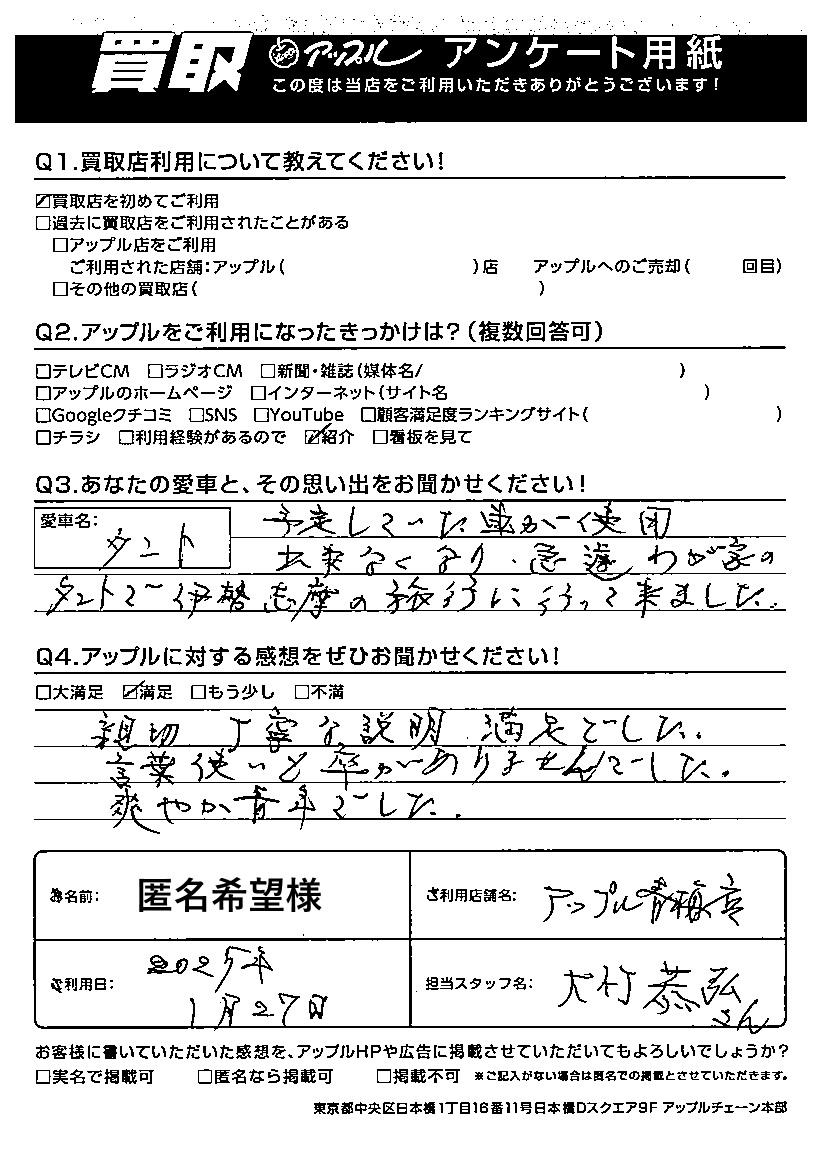 買取 アップル アンケート用紙
この度は当店をご利用いただきありがとうございます!
Q1.買取店利用について教えてください!
☑買取店を初めてご利用
□過去に買取店をご利用されたことがある
□アップル店をご利用
ご利用された店舗:アップル( )店 アップルへのご売却( 回目)
□その他の買取店( )
Q2.アップルをご利用になったきっかけは?(複数回答可)
□テレビCM □ラジオCM □新聞・雑誌(媒体名/ )
□アップルのホームページ □インターネット(サイト名 )
□Googleクチコミ □SNS □YouTube □顧客満足度ランキングサイト( )
□チラシ □利用経験があるので ☑紹介 □看板を見て
Q3.あなたの愛車と、その思い出をお聞かせください!
愛車名: タント
予定していた車が使用
出来なくなり、急遽わが家の
タントで伊勢志摩の旅行に行って来ました。
Q4.アップルに対する感想をぜひお聞かせください!
□大満足 ☑満足 □もう少し □不満
親切 丁寧な説明 満足でした。
言葉使いと卒がありませんでした。
爽やか青年でした。
お名前: 匿名希望様
ご利用店舗名: アップル青梅店
ご利用日: 2025年
1月27日
担当スタッフ名: 大竹恭弘
さん
お客様に書いていただいた感想を、アップルHPや広告に掲載させていただいてもよろしいでしょうか?
□実名で掲載可 □匿名なら掲載可 □掲載不可 ※ご記入がない場合は匿名での掲載とさせていただきます。
東京都中央区日本橋1丁目16番11号日本橋Dスクエア9F アップルチェーン本部